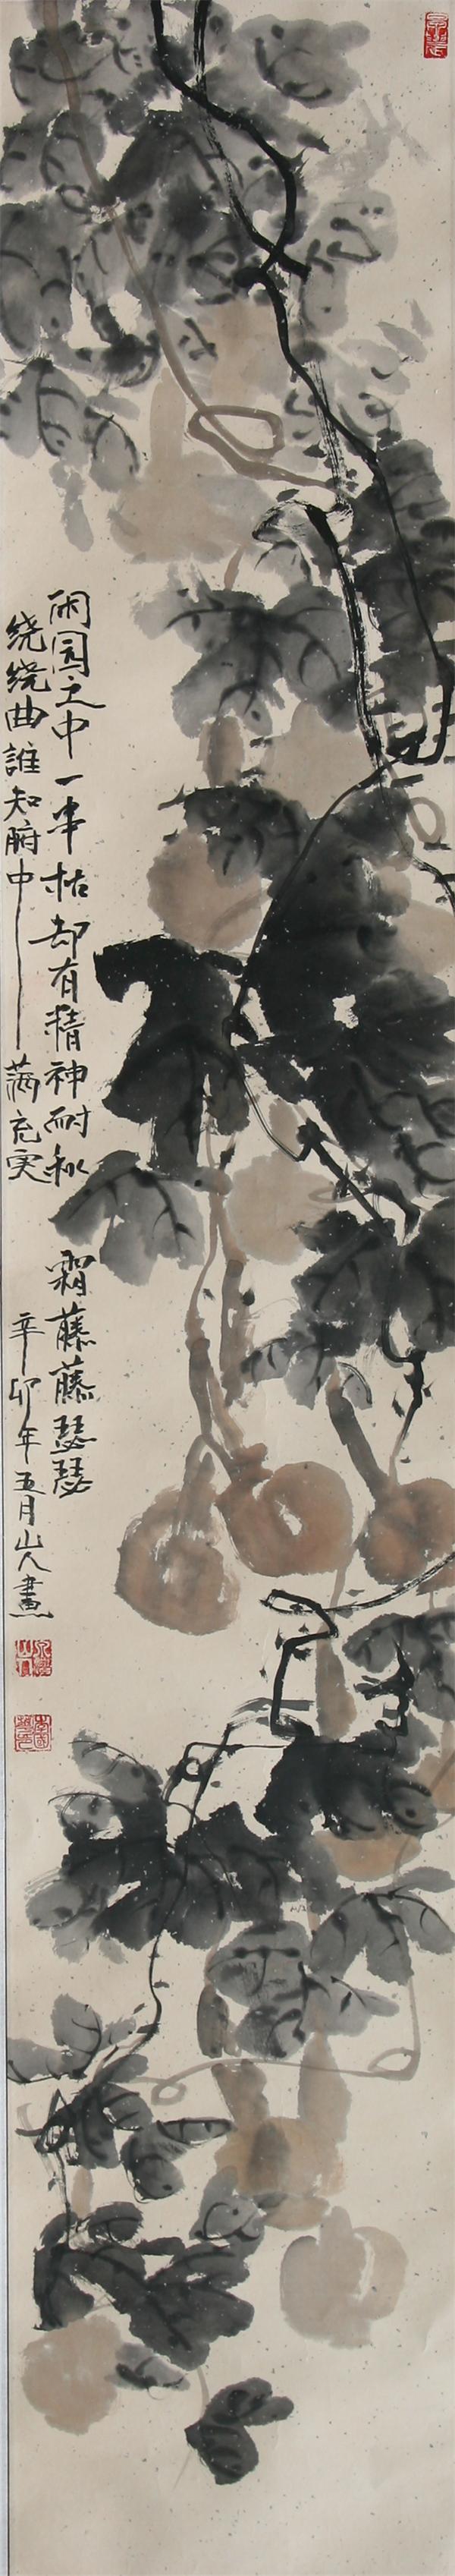 闲园之中一半枯却有精神耐秋霜藤藤瑟瑟
绕绕曲誰知腑中一满充实
辛卯年五月山人畫